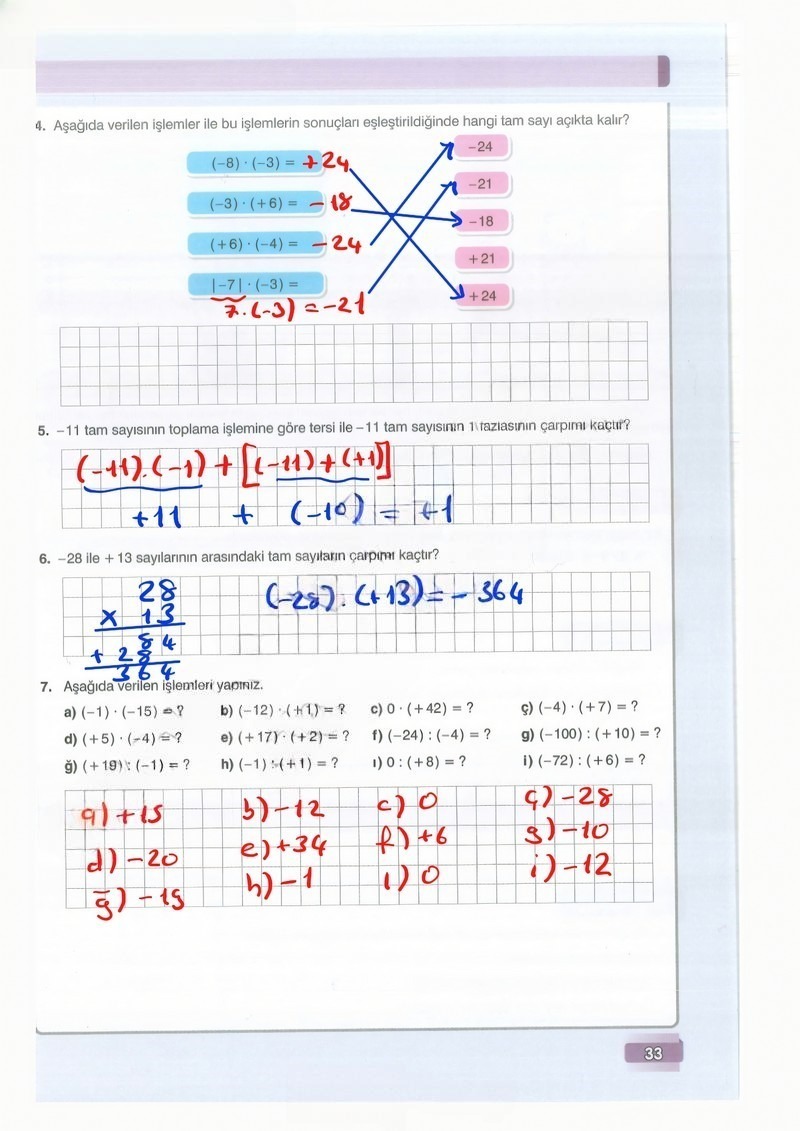 4. Aşağıda verilen işlemler ile bu işlemlerin sonuçları eşleştirildiğinde hangi tam sayı açıkta kalır?
(−8) · (−3) = +24
−24
(−3) · (+6) = −18
−21
(+6) · (−4) = −24
−18
|−7| · (−3) =
7·(−3) = −21
+21
+24
5. −11 tam sayısının toplama işlemine göre tersi ile −11 tam sayısının 1 fazlasının çarpımı kaçtır?
(−11).(−1) + [(−11) + (+1)]
+11 + (−10) = +1
6. −28 ile +13 sayılarının arasındaki tam sayıların çarpımı kaçtır?
28
(−28) . (+13) = − 364
x 13
84
+ 28
364
7. Aşağıda verilen işlemleri yapınız.
a) (−1) · (−15) = ? b) (−12) · (+1) = ? c) 0 · (+42) = ? ç) (−4) · (+7) = ?
d) (+5) · (−4) = ? e) (+17) · (+2) = ? f) (−24) : (−4) = ? g) (−100) : (+10) = ?
ğ) (+19) : (−1) = ? h) (−1) : (+1) = ? ı) 0 : (+8) = ? i) (−72) : (+6) = ?
a) +15 b) −12 c) 0 ç) −28
d) −20 e) +34 f) +6 g) −10
ğ) −19 h) −1 ı) 0 i) −12
33